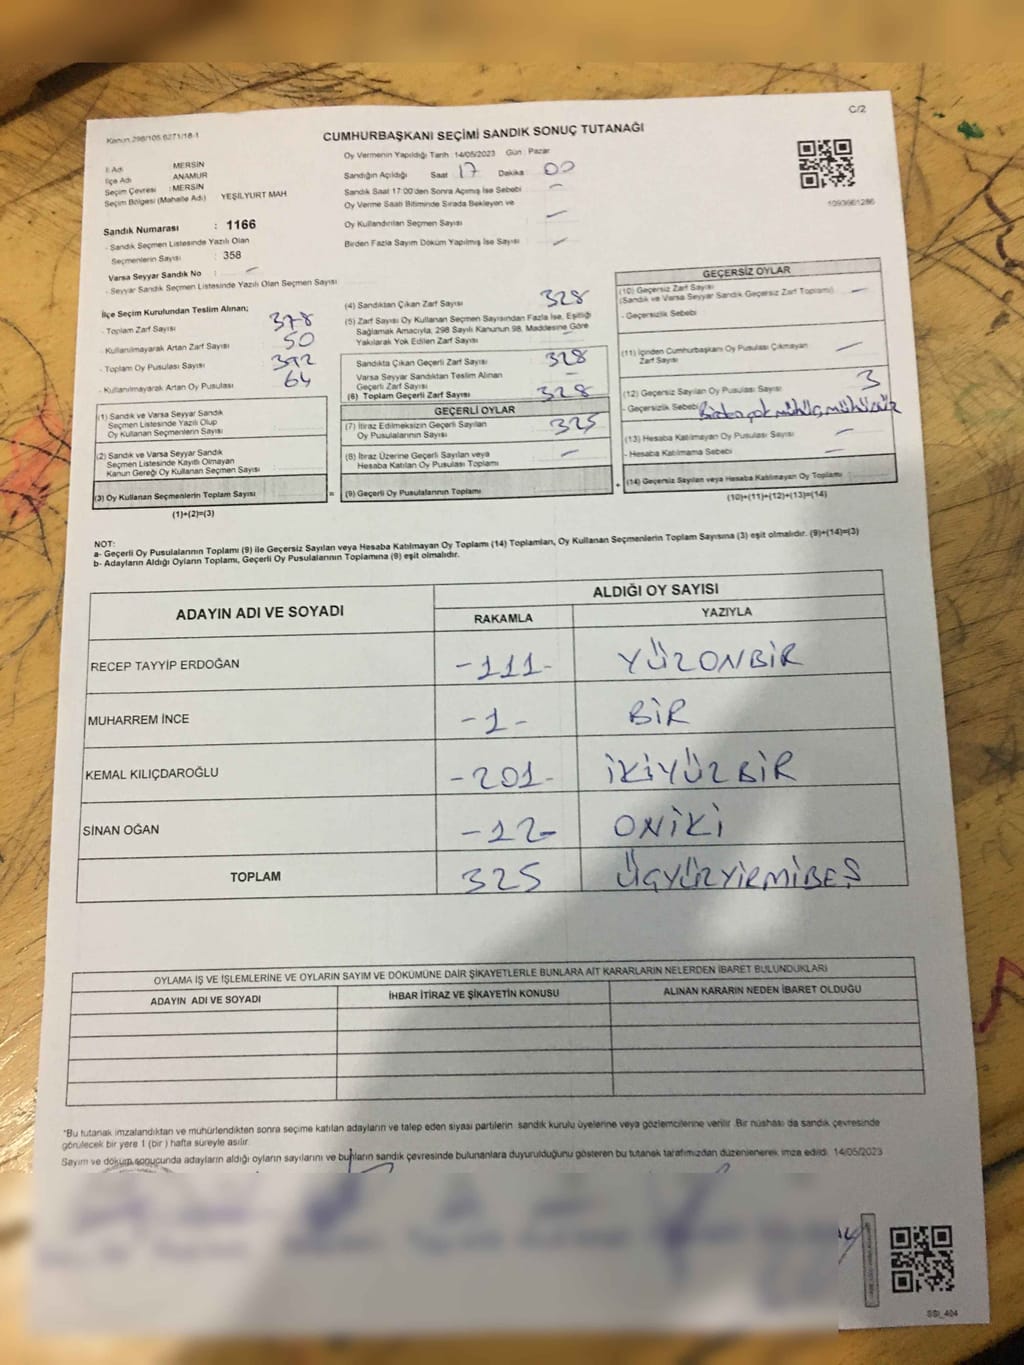 Kanun 298/105.6271/18-1
C/2
CUMHURBAŞKANI SEÇİMİ SANDIK SONUÇ TUTANAĞI
İl Adı MERSİN
İlçe Adı ANAMUR
Seçim Çevresi : MERSİN
Seçim Bölgesi (Mahalle Adı) YEŞİLYURT MAH
Sandık Numarası : 1166
- Sandık Seçmen Listesinde Yazılı Olan
Seçmenlerin Sayısı : 358
Varsa Seyyar Sandık No : -
- Seyyar Sandık Seçmen Listesinde Yazılı Olan Seçmen Sayısı
Oy Vermenin Yapıldığı Tarih : 14/05/2023 Gün : Pazar
Sandığın Açıldığı Saat 17 Dakika 00
Sandık Saat 17:00'den Sonra Açımış İse Sebebi -
Oy Verme Saati Bitiminde Sırada Bekleyen ve
Oy Kullandırılan Seçmen Sayısı -
Birden Fazla Sayım Döküm Yapılmış İse Sayısı -
1093661286
İlçe Seçim Kurulundan Teslim Alınan;
- Toplam Zarf Sayısı 378
- Kullanılmayarak Artan Zarf Sayısı 50
- Toplam Oy Pusulası Sayısı 392
- Kullanılmayarak Artan Oy Pusulası 64
(1) Sandık ve Varsa Seyyar Sandık
Seçmen Listesinde Yazılı Olup
Oy Kullanan Seçmenlerin Sayısı
(2) Sandık ve Varsa Seyyar Sandık
Seçmen Listesinde Kayıtlı Olmayan
Kanun Gereği Oy Kullanan Seçmen Sayısı
(3) Oy Kullanan Seçmenlerin Toplam Sayısı
(1)+(2)=(3)
(4) Sandıktan Çıkan Zarf Sayısı 328
(5) Zarf Sayısı Oy Kullanan Seçmen Sayısından Fazla İse, Eşitliği
Sağlamak Amacıyla, 298 Sayılı Kanunun 98. Maddesine Göre
Yakılarak Yok Edilen Zarf Sayısı -
Sandıkta Çıkan Geçerli Zarf Sayısı 328
Varsa Seyyar Sandıktan Teslim Alınan
Geçerli Zarf Sayısı -
(6) Toplam Geçerli Zarf Sayısı 328
GEÇERLİ OYLAR
(7) İtiraz Edilmeksizin Geçerli Sayılan
Oy Pusulalarının Sayısı 325
(8) İtiraz Üzerine Geçerli Sayılan veya
Hesaba Katılan Oy Pusulası Toplamı -
= (9) Geçerli Oy Pusulalarının Toplamı +
GEÇERSİZ OYLAR
(10) Geçersiz Zarf Sayısı -
(Sandık ve Varsa Seyyar Sandık Geçersiz Zarf Toplamı)
- Geçersizlik Sebebi
(11) İçinden Cumhurbaşkanı Oy Pusulası Çıkmayan
Zarf Sayısı -
(12) Geçersiz Sayılan Oy Pusulası Sayısı 3
- Geçersizlik Sebebi Birden çok mühür,
(13) Hesaba Katılmayan Oy Pusulası Sayısı -
- Hesaba Katılmama Sebebi -
(14) Geçersiz Sayılan veya Hesaba Katılmayan Oy Toplamı
(10)+(11)+(12)+(13)=(14)
NOT:
a- Geçerli Oy Pusulalarının Toplamı (9) ile Geçersiz Sayılan veya Hesaba Katılmayan Oy Toplamı (14) Toplamları, Oy Kullanan Seçmenlerin Toplam Sayısına (3) eşit olmalıdır. (9)+(14)=(3)
b- Adayların Aldığı Oyların Toplamı, Geçerli Oy Pusulalarının Toplamına (9) eşit olmalıdır.
ADAYIN ADI VE SOYADI
ALDIĞI OY SAYISI
RAKAMLA YAZIYLA
RECEP TAYYİP ERDOĞAN -111- YÜZONBİR
MUHARREM İNCE -1- BİR
KEMAL KILIÇDAROĞLU -201- İKİYÜZBİR
SİNAN OĞAN -12- ONİKİ
TOPLAM 325 ÜÇYÜZYİRMİBEŞ
OYLAMA İŞ VE İŞLEMLERİNE VE OYLARIN SAYIM VE DÖKÜMÜNE DAİR ŞİKAYETLERLE BUNLARA AİT KARARLARIN NELERDEN İBARET BULUNDUKLARI
ADAYIN ADI VE SOYADI İHBAR İTİRAZ VE ŞİKAYETİN KONUSU ALINAN KARARIN NEDEN İBARET OLDUĞU
"Bu tutanak imzalandıktan ve mühürlendikten sonra seçime katılan adayların ve talep eden siyasi partilerin sandık kurulu üyelerine veya gözlemcilerine verilir. Bir nüshası da sandık çevresinde
görülecek bir yere 1 (bir) hafta süreyle asılır.
Sayım ve döküm sonucunda adayların aldığı oyların sayılarını ve bunların sandık çevresinde bulunanlara duyurulduğunu gösteren bu tutanak tarafımızdan düzenlenerek imza edildi. 14/05/2023
SSI_404